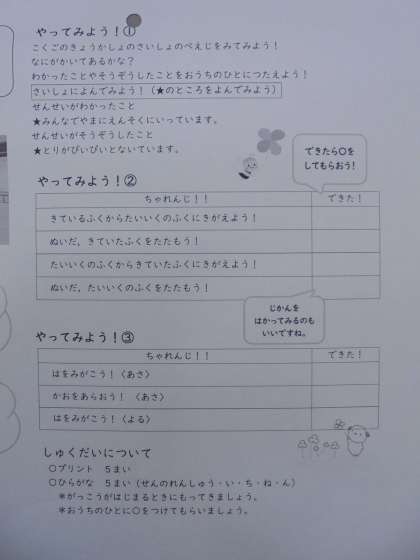 やってみよう！①
こくごのきょうかしょのさいしょのぺえじをみてみよう！
なにがかいてあるかな？
わかったことやそうぞうしたことをおうちのひとにつたえよう！
さいしょによんでみよう！（★のところをよんでみよう）
せんせいがわかったこと
★みんなでやまにえんそくにいっています。
せんせいがそうぞうしたこと
★とりがぴいぴいとないています。
できたら〇を
してもらおう！
やってみよう！②
ちゃれんじ！！ できた！
きているふくからたいいくのふくにきがえよう！
ぬいだ，きていたふくをたたもう！
たいいくのふくからきていたふくにきがえよう！
ぬいだ，たいいくのふくをたたもう！
じかんを
はかってみるのも
いいですね。
やってみよう！③
ちゃれんじ！！ できた！
はをみがこう！〈あさ〉
かおをあらおう！〈あさ〉
はをみがこう！〈よる〉
しゅくだいについて
〇プリント ５まい
〇ひらがな ５まい（せんのれんしゅう・い・ち・ね・ん）
＊がっこうがはじまるときにもってきましょう。
＊おうちのひとに〇をつけてもらいましょう。